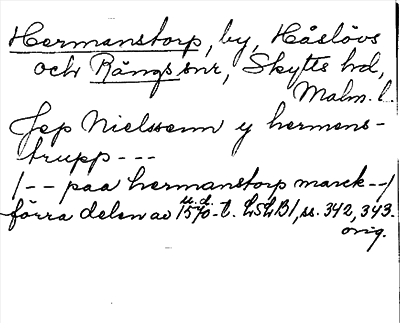 Hermanstorp, by, Håslövs
och Rängs snr, Skytts hd,
Malm. l.
Jep Nielssenn y hermens-
trupp ---
/-- paa hermanstorp marck --/
förra delen av 1570-t. u.d. LSLB1, ss. 342, 343.
orig.